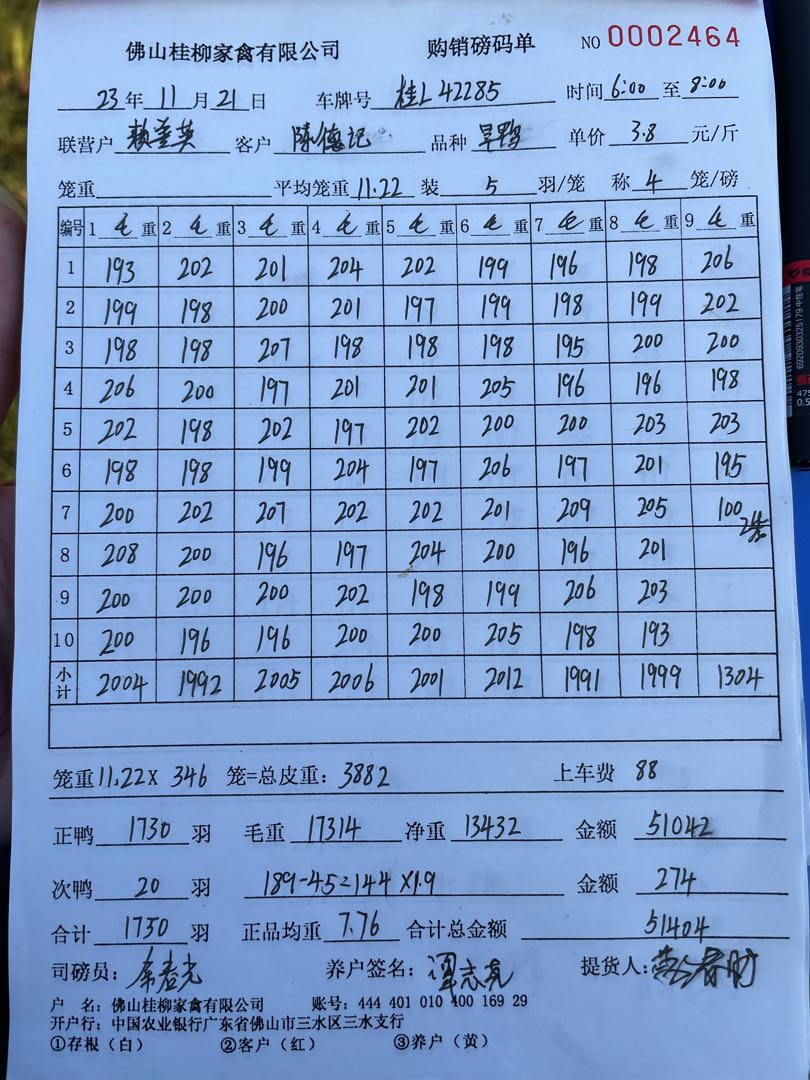 佛山桂柳家禽有限公司 购销磅码单 NO 0002464
23年11月21日 车牌号 桂L42285 时间 6:00 至 8:00
联营户 客户 陈德记 品种 旱鸭 单价 3.8 元/斤
笼重 平均笼重 11.22 装 5 羽/笼 称 4 笼/磅
编号 1 毛 重 2 毛 重 3 毛 重 4 毛 重 5 毛 重 6 毛 重 7 毛 重 8 毛 重 9 毛 重
1 193 202 201 204 202 199 196 198 206
2 199 198 200 201 197 199 198 199 202
3 198 198 207 198 198 198 195 200 200
4 206 200 197 201 201 205 196 196 198
5 202 198 202 197 202 200 200 203 203
6 198 198 199 204 197 206 197 201 195
7 200 202 207 202 202 201 209 205 100 2笼
8 208 200 196 197 204 200 196 201
9 200 200 200 202 198 199 206 203
10 200 196 196 200 200 205 198 193
小计 2004 1992 2005 2006 2001 2012 1991 1999 1304
笼重 11.22 X 346 笼=总皮重: 3882 上车费 88
正鸭 1730 羽 毛重 17314 净重 13432 金额 51042
次鸭 20 羽 189-45=144 X1.9 金额 274
合计 1750 羽 正品均重 7.76 合计总金额 51404
司磅员: 养户签名: 提货人:
户 名: 佛山桂柳家禽有限公司 账号: 444 401 010 400 169 29
开户行: 中国农业银行广东省佛山市三水区三水支行
①存根(白) ②客户(红) ③养户(黄)
6920930325179 中性笔